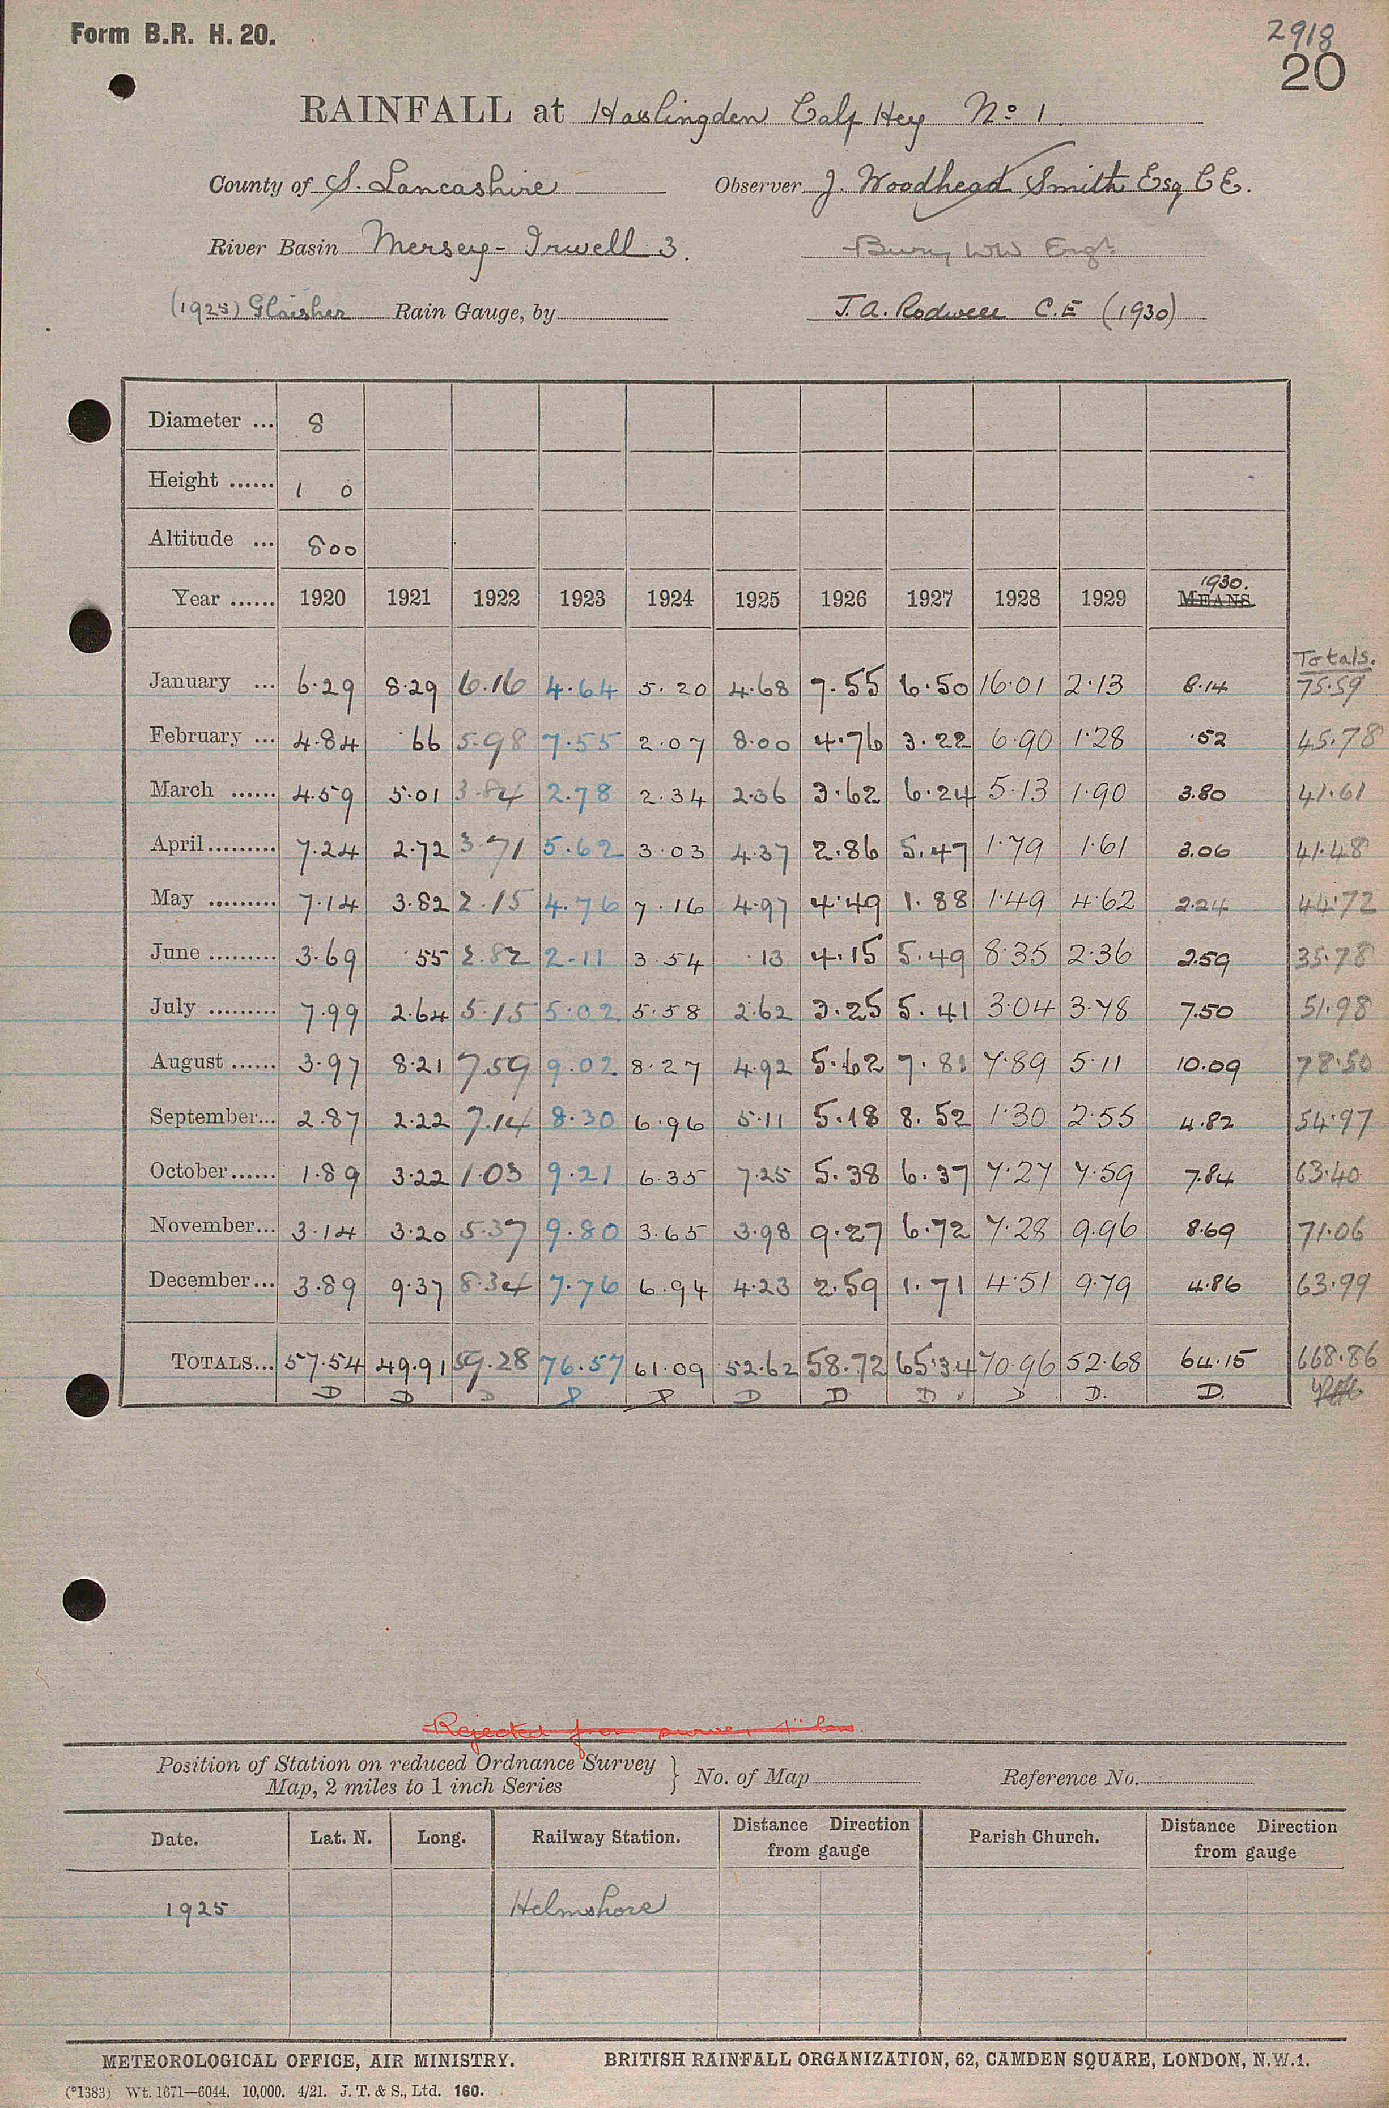 Form B.R. H. 20.
2918
20
RAINFALL at Haslingden Calf Hey No 1
County of S. Lancashire Observer J. Woodhead Smith Esq C E.
River Basin Mersey - Irwell 3. Bury WW Engr
(1925) Glaisher Rain Gauge, by J. A. Rodwell C.E (1930)
Diameter ... 8
Height ...... 1 0
Altitude ... 800
Year ...... 1920 1921 1922 1923 1924 1925 1926 1927 1928 1929 1930. MEANS
Totals.
January ... 6.29 8.29 6.16 4.64 5.20 4.68 7.55 6.50 16.01 2.13 8.14 75.59
February ... 4.84 .66 5.98 7.55 2.07 8.00 4.76 3.22 6.90 1.28 .52 45.78
March ...... 4.59 5.01 3.84 2.78 2.34 2.36 3.62 6.24 5.13 1.90 3.80 41.61
April ......... 7.24 2.72 3.71 5.62 3.03 4.37 2.86 5.47 1.79 1.61 3.06 41.48
May ......... 7.14 3.82 2.15 4.76 7.16 4.97 4.49 1.88 1.49 4.62 2.24 44.72
June ......... 3.69 .55 2.82 2.11 3.54 .13 4.15 5.49 8.35 2.36 2.59 35.78
July ......... 7.99 2.64 5.15 5.02 5.58 2.62 3.25 5.41 3.04 3.78 7.50 51.98
August ...... 3.97 8.21 7.59 9.02 8.27 4.92 5.62 7.81 7.89 5.11 10.09 78.50
September... 2.87 2.22 7.14 8.30 6.96 5.11 5.18 8.52 1.30 2.55 4.82 54.97
October...... 1.89 3.22 1.03 9.21 6.35 7.25 5.38 6.37 7.27 7.59 7.84 63.40
November... 3.14 3.20 5.37 9.80 3.65 3.98 9.27 6.72 7.28 9.96 8.69 71.06
December... 3.89 9.37 8.34 7.76 6.94 4.23 2.59 1.71 4.51 9.79 4.86 63.99
TOTALS... 57.54 49.91 59.28 76.57 61.09 52.62 58.72 65.34 70.96 52.68 64.15 668.86
D D D D D D D D D D. D.
Rejected from survey files.
Position of Station on reduced Ordnance Survey
Map, 2 miles to 1 inch Series } No. of Map Reference No.
Date. Lat. N. Long. Railway Station. Distance Direction from gauge Parish Church. Distance Direction from gauge
1925 Helmshore
METEOROLOGICAL OFFICE, AIR MINISTRY. BRITISH RAINFALL ORGANIZATION, 62, CAMDEN SQUARE, LONDON, N.W.1.
(*1383) Wt. 1671—6044. 10,000. 4/21. J. T. & S., Ltd. 160.